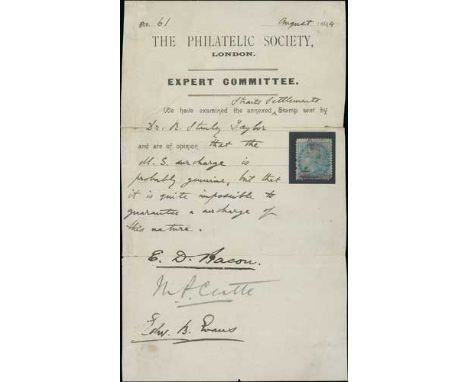 No. 61 August 1894
THE PHILATELIC SOCIETY,
LONDON.
EXPERT COMMITTEE.
Straits Settlements
We have examined the annexed ^ Stamp sent by
Dr. R Stanley Taylor
and are of opinion that the
M. S. surcharge is
probably genuine, but that
it is quite impossible to
guarantee a surcharge of
this nature.
E. D. Bacon.
M. P. Castle
Edw. B. Evans